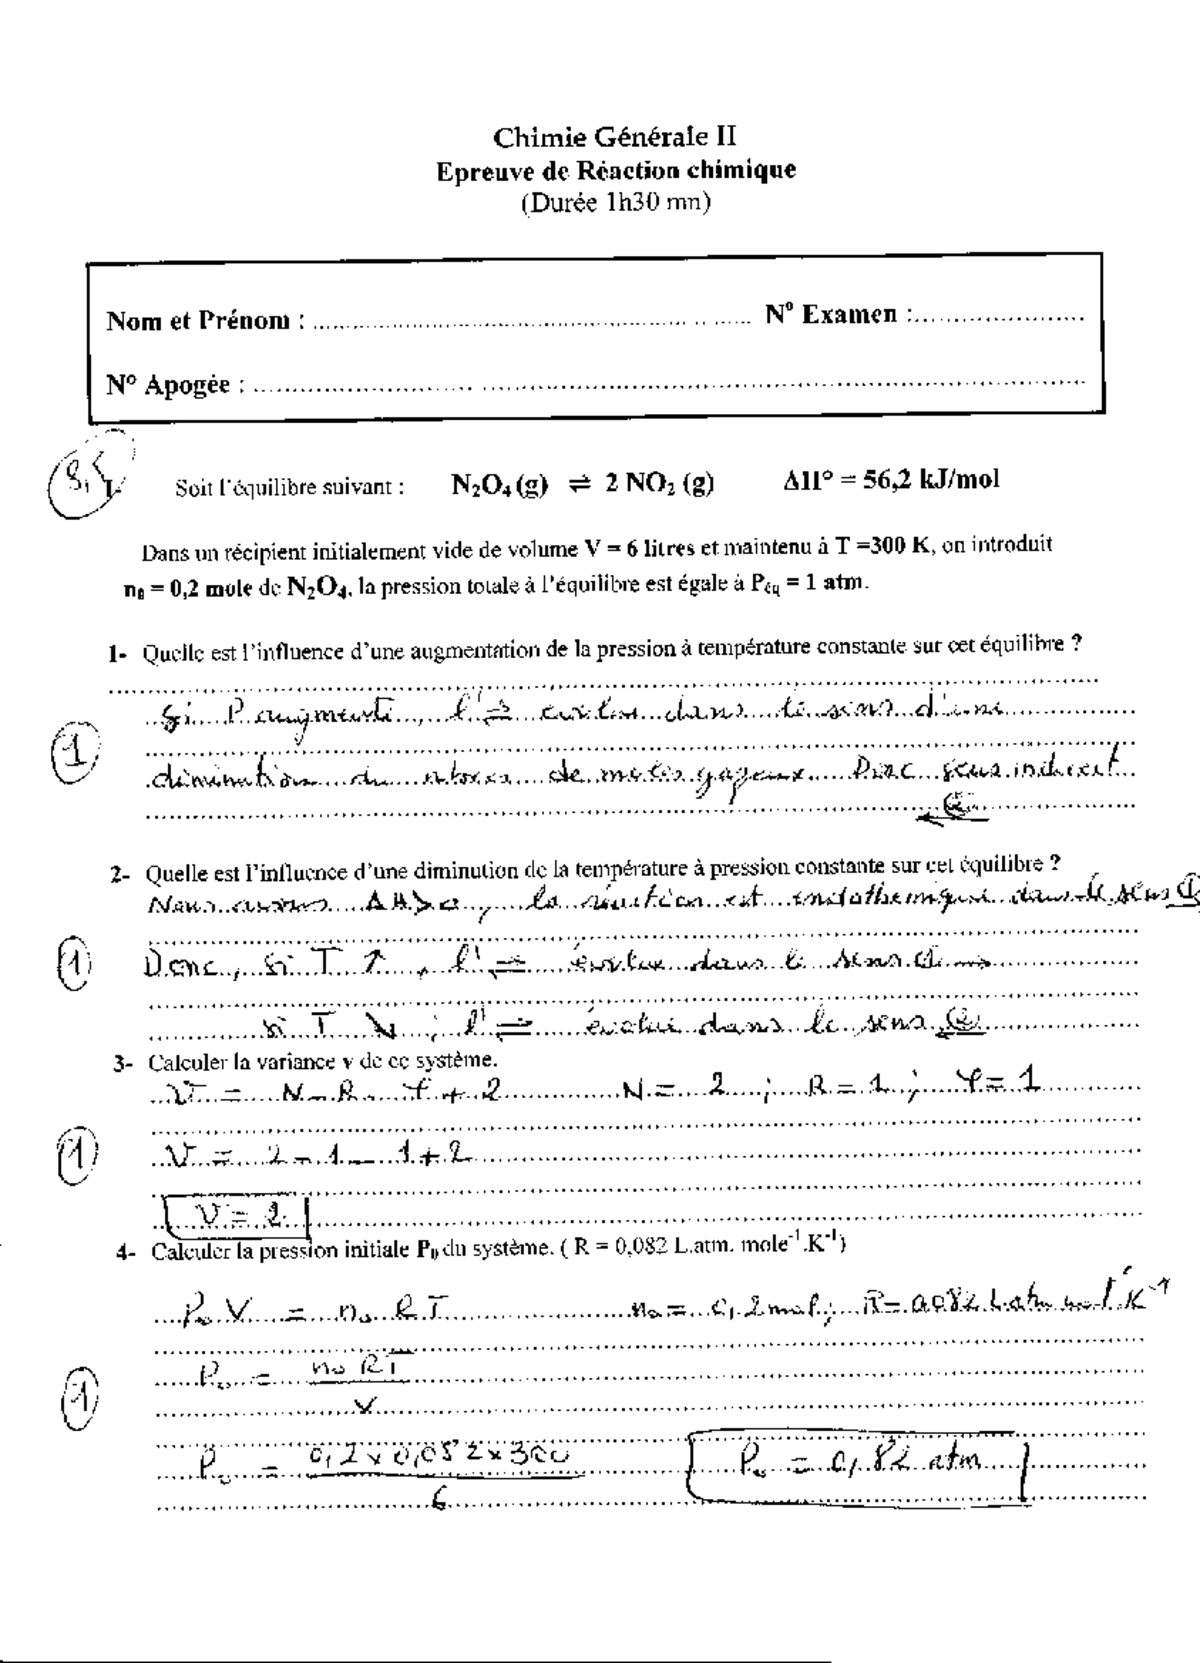 Chimie Générale II
Epreuve de Réaction chimique
(Durée 1h30 mn)
Nom et Prénom : .......... N° Examen :..........
N° Apogée : ..........
8,5
Soit l'équilibre suivant : N₂O₄ (g) ⇌ 2 NO₂ (g) ΔH° = 56,2 kJ/mol
Dans un récipient initialement vide de volume V = 6 litres et maintenu à T =300 K, on introduit
n₀ = 0,2 mole de N₂O₄, la pression totale à l'équilibre est égale à Péq = 1 atm.
1- Quelle est l'influence d'une augmentation de la pression à température constante sur cet équilibre ?
Si P augmente, l'⇌ évolue dans le sens d'une
1
diminution du nbres de moles gazeux. Donc sens indirect
← ②
2- Quelle est l'influence d'une diminution de la température à pression constante sur cet équilibre ?
Nous avons ΔH>0, la réaction est endothermique dans le sens ①
1 Donc, si T ↑, l'⇌ évolue dans le sens ① →
si T ↘, l'⇌ évolue dans le sens ②
3- Calculer la variance v de ce système.
V = N - R - φ + 2 N = 2 ; R = 1 ; φ = 1
1 V = 2 - 1 - 1 + 2
V = 2
4- Calculer la pression initiale P₀ du système. ( R = 0,082 L.atm. mole⁻¹.K⁻¹)
P₀ V = n₀ R T n₀ = 0,2 mol ; R = 0,082 L.atm mol⁻¹ K⁻¹
P₀ = n₀ RT / V
1
P₀ = 0,2 x 0,082 x 300 / 6 P₀ = 0,82 atm